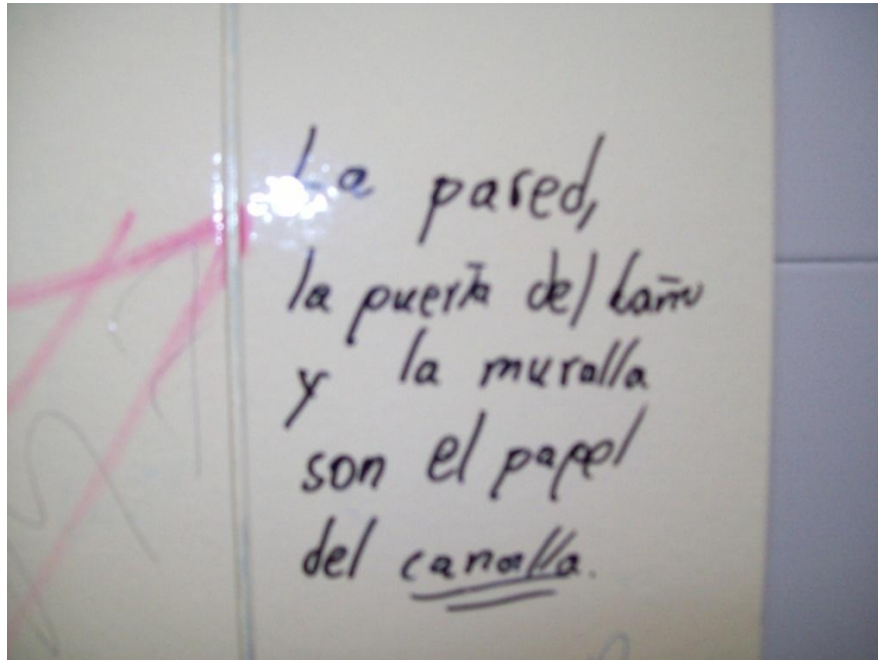 La pared,
la puerta del baño
y la muralla
son el papel
del canalla.